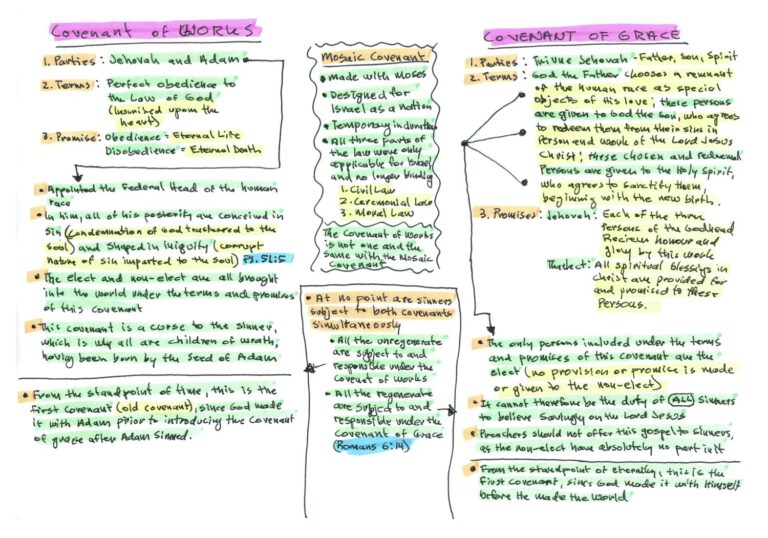 Covenant of WORKS
1. Parties: Jehovah and Adam
2. Terms: Perfect obedience to
the Law of God
(Inscribed upon the
heart)
3. Promise: Obedience = Eternal Life
Disobedience = Eternal Death
• Appointed the Federal Head of the human
race
• In him, all of his posterity are conceived in
Sin (condemnation of God transferred to the
soul) and Shaped in iniquity (corrupt
nature of sin imparted to the soul) Ps. 51:5
• The elect and non-elect are all brought
into the world under the terms and promises
of this covenant
• This covenant is a curse to the sinner,
which is why all are children of wrath,
having been born by the seed of Adam
• From the standpoint of time, this is the
first Covenant (old covenant), since God made
it with Adam prior to introducing the Covenant
of grace after Adam sinned.
Mosaic Covenant
• made with Moses
• Designed for
Israel as a nation
• Temporary in duration
• All three parts of
the law were only
applicable for Israel
and no longer binding
1. Civil Law
2. Ceremonial Law
3. Moral Law
The Covenant of Works
is not one and the
same with the Mosaic
Covenant
• At no point are sinners
subject to both covenants
simultaneously
• All the unregenerate
are subject to and
responsible under the
Covenet of Works
• All the regenerate
are subject to and
responsible under the
Covenant of Grace
(Romans 6:14)
COVENANT OF GRACE
1. Parties: Triune Jehovah - Father, Son, Spirit
2. Terms: God the Father chooses a remnant
of the human race as special
objects of His love; these persons
are given to God the Son, who agrees
to redeem them from their sins in
Person and work of the Lord Jesus
Christ; these chosen and redeemed
Persons are given to the Holy Spirit,
who agrees to sanctify them,
beginning with the new birth.
3. Promises: Jehovah: Each of the three
Persons of the Godhead
Receives honour and
glory by this work
The elect: All spiritual blessings in
Christ are provided for
and promised to these
Persons.
• The only persons included under the terms
and promises of this covenant are the
elect (no provision or promise is made
or given to the non-elect)
• It cannot therefore be the duty of ALL sinners
to believe savingly on the Lord Jesus
• Preachers should not offer this gospel to sinners,
as the non-elect have absolutely no part in it
• From the standpoint of eternity, this is the
first covenant, since God made it with Himself
before He made the world